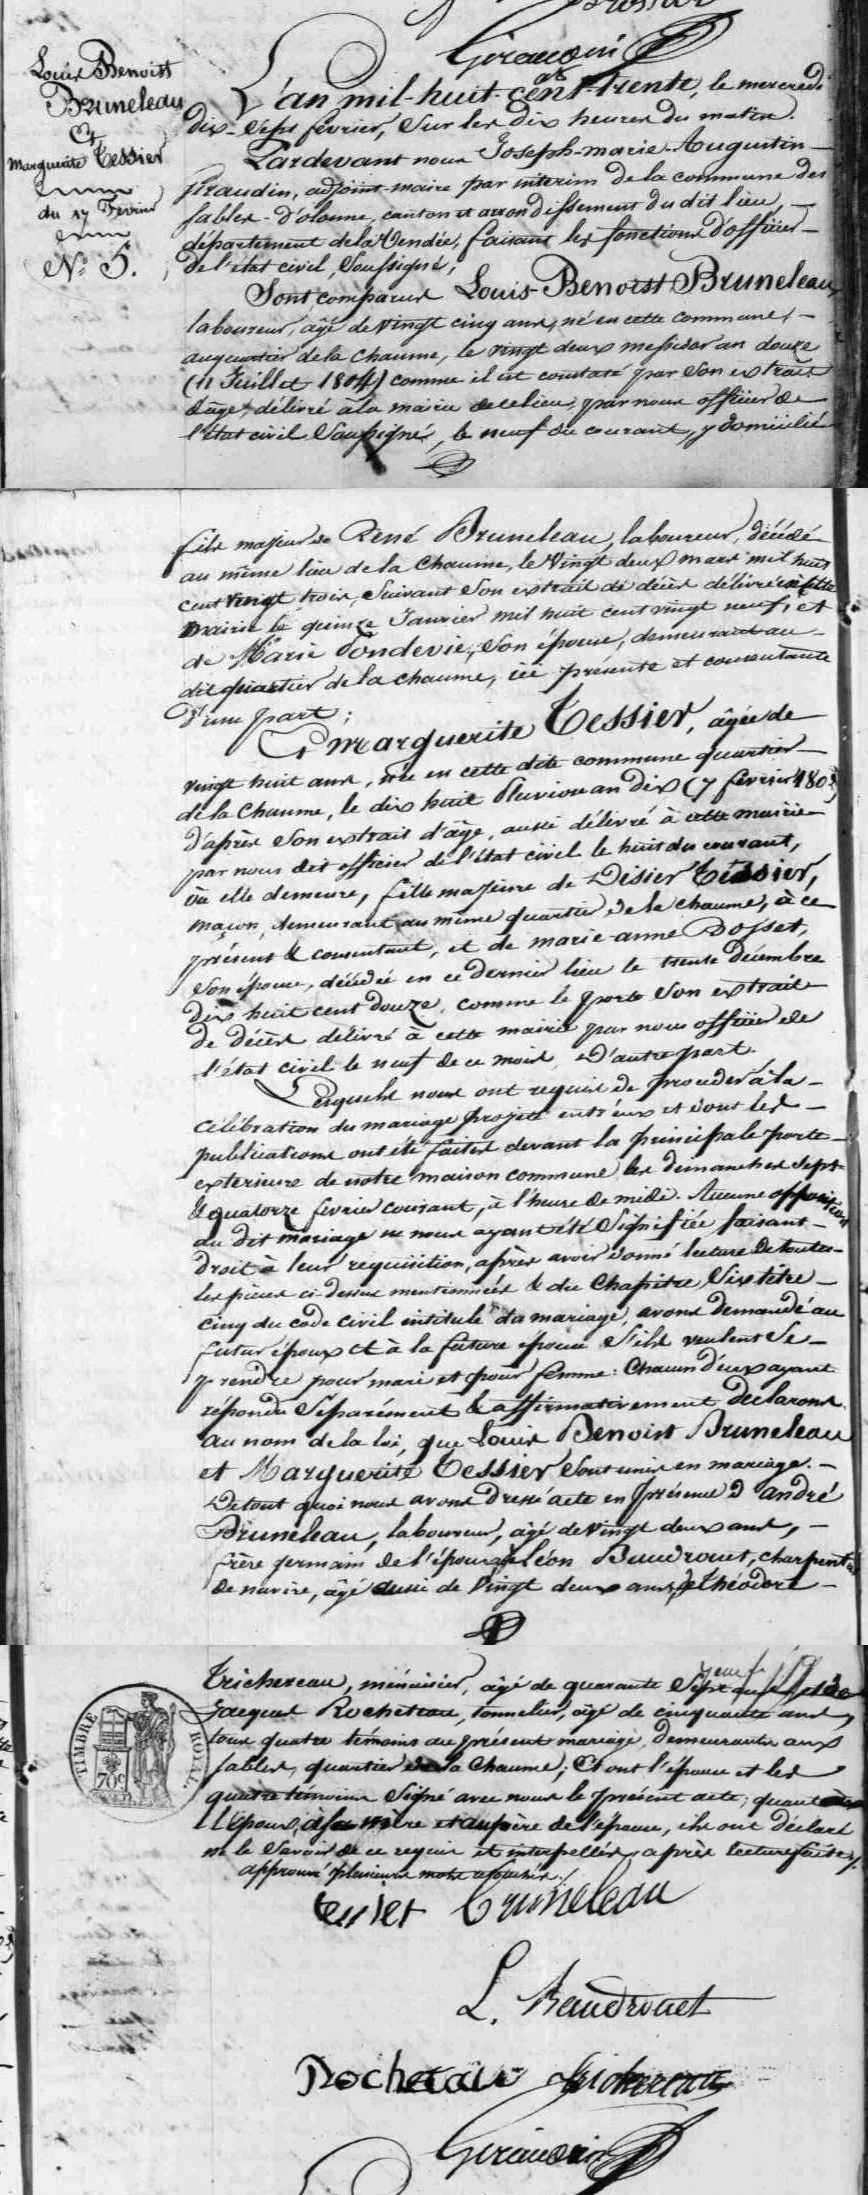 Giraudin
Louis Benoist
Bruneleau
&
Marguerite Tessier
du 17 Fevrier
N.° 5.
L'an mil-huit-cent-trente, le mercredi
dix-sept février, sur les dix heures du matin.
Pardevant nous Joseph-marie-Augustin
Giraudin, adjoint-maire par interim de la commune des
sables-d'olonne, canton et arrondissement du dit lieu,
département de la Vendée, faisant les fonctions d'officier
de l'état civil, soussigné;
Sont comparus Louis-Benoist Bruneleau,
laboureur, âgé de vingt cinq ans, né en cette commune,
au quartier de la chaume, le vingt deux messidor an douze
(11 Juillet 1804) comme il est constaté par son extrait
d'âge, délivré à la mairie de ce lieu, par nous officier de
l'état civil soussigné, le neuf du courant, y domicilié
fils majeur de René Bruneleau, laboureur, décédé
au même lieu de la Chaume, le vingt deux mars mil huit
cent vingt trois, suivant son extrait de décès délivré en cette
mairie le quinze Janvier mil huit cent vingt neuf, et
de Marie Fondevie, son épouse, demeurant au
dit quartier de la chaume, ici présente et consentante
d'une part;
Et marguerite Tessier, âgée de
vingt huit ans, née en cette dite commune quartier
de la Chaume, le dix huit Pluviose an dix (7 février 1802)
d'après son extrait d'âge, aussi délivré à cette mairie
par nous dit officier de l'état civil le huit du courant,
où elle demeure, fille majeure de Disier Tessier,
maçon, demeurant au même quartier de la chaume, à ce
présent & consentant, et de marie-anne Dosset,
son épouse, décédée en ce dernier lieu le trente décembre
dix huit cent douze, comme le porte son extrait
de décès délivré à cette mairie par nous officier de
l'état civil le neuf de ce mois, D'autre part.
Lesquels nous ont requis de procéder à la
célébration du mariage projeté entr'eux et dont les
publications ont été faites devant la principale porte
exterieure de notre maison commune les dimanches sept
& quatorze février courant, à l'heure de midi. Aucune opposition
au dit mariage ne nous ayant été signifiée faisant
droit à leur requisition, après avoir donné lecture de toutes
les pièces ci-dessus mentionnées & du Chapitre Six titre
cinq du code civil intitulé du mariage, avons demandé au
futur époux et à la future épouse s'ils veulent se
prendre pour mari et pour femme: Chacun d'eux ayant
répondu séparément & affirmativement declarons
au nom de la loi, que Louis Benoist Bruneleau
et Marguerite Tessier sont unis en mariage.
De tout quoi nous avons dressé acte en présence d'andré
Bruneleau, laboureur, âgé de vingt deux ans,
frère germain de l'époux, de Léon Baudrouet, charpentier
de navire, âgé aussi de vingt deux ans, de Théodore
Trichereau, menuisier, âgé de quarante sept ans et de
Jacques Rocheteau, tonnelier, âgé de cinquante ans,
tous quatre témoins au présent mariage, demeurants aux
sables, quartier de la Chaume; Et ont l'épouse et les
quatre témoins signé avec nous le présent acte; quant à
l'époux, à sa mère et au père de l'épouse, ils ont déclaré
ne le savoir de ce requis et interpellés, après lecture faite.
approuvé plusieurs mots
TIMBRE ROYAL
70 c
tessier Bruneleau
L. Baudrouet
Rocheteau Trichereau
Giraudin